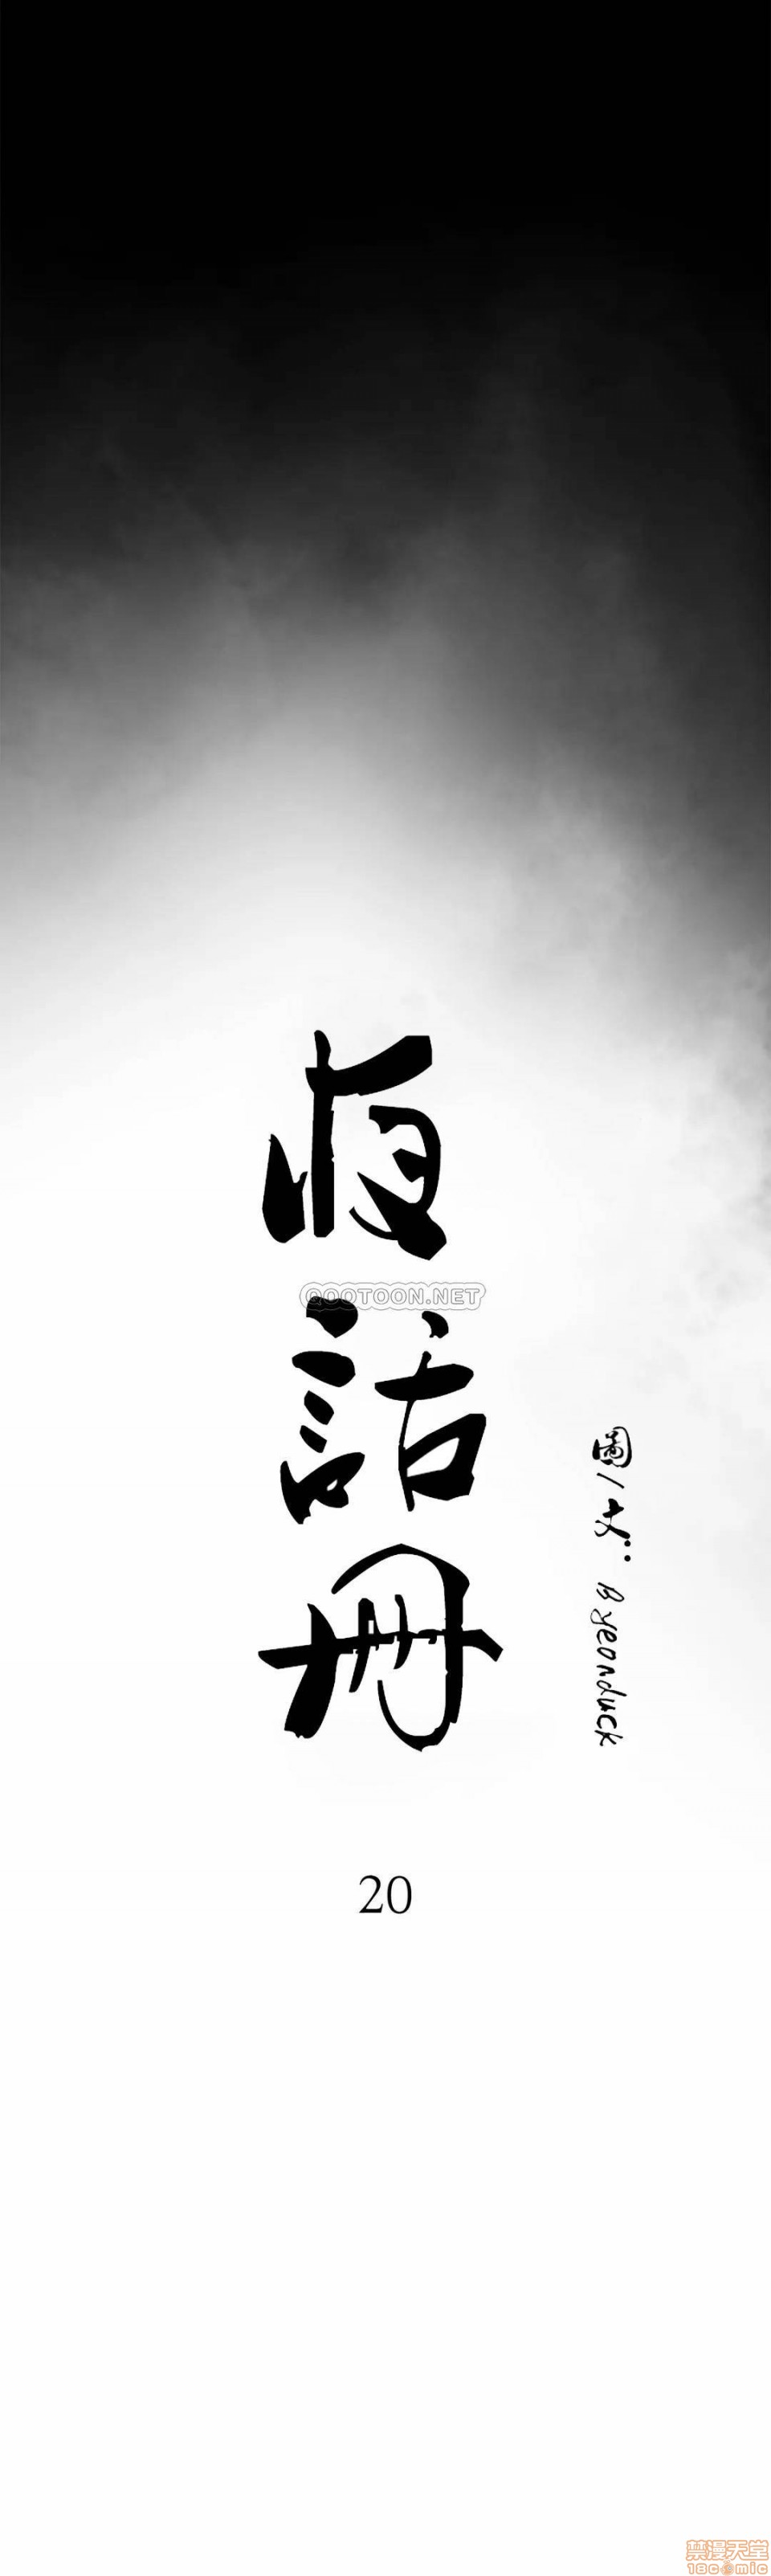 夜
話
冊
QOOTOON.NET
圖/文: Byeonduck
20
禁漫天堂
18comic